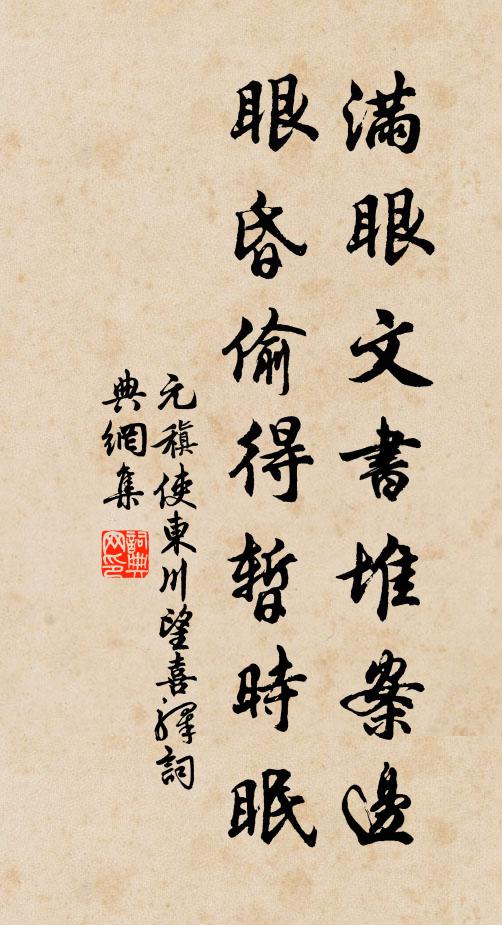 滿眼文書堆案邊
眼昏偷得暫時眠
元稹使東川望喜驛詞
典網集
詞典
网印